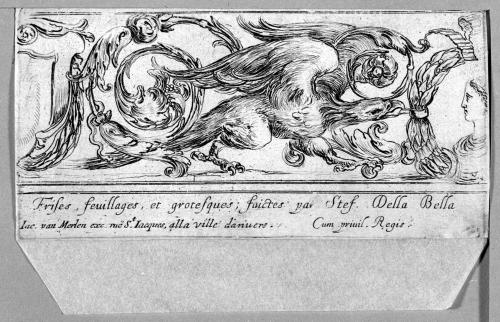 Frises, feuillages, et grotesques; faictes par Stef. Della Bella
Iac. van Merlen exc. rue S.t Iacques, alla ville d'anuers. Cum priuil. Regis.